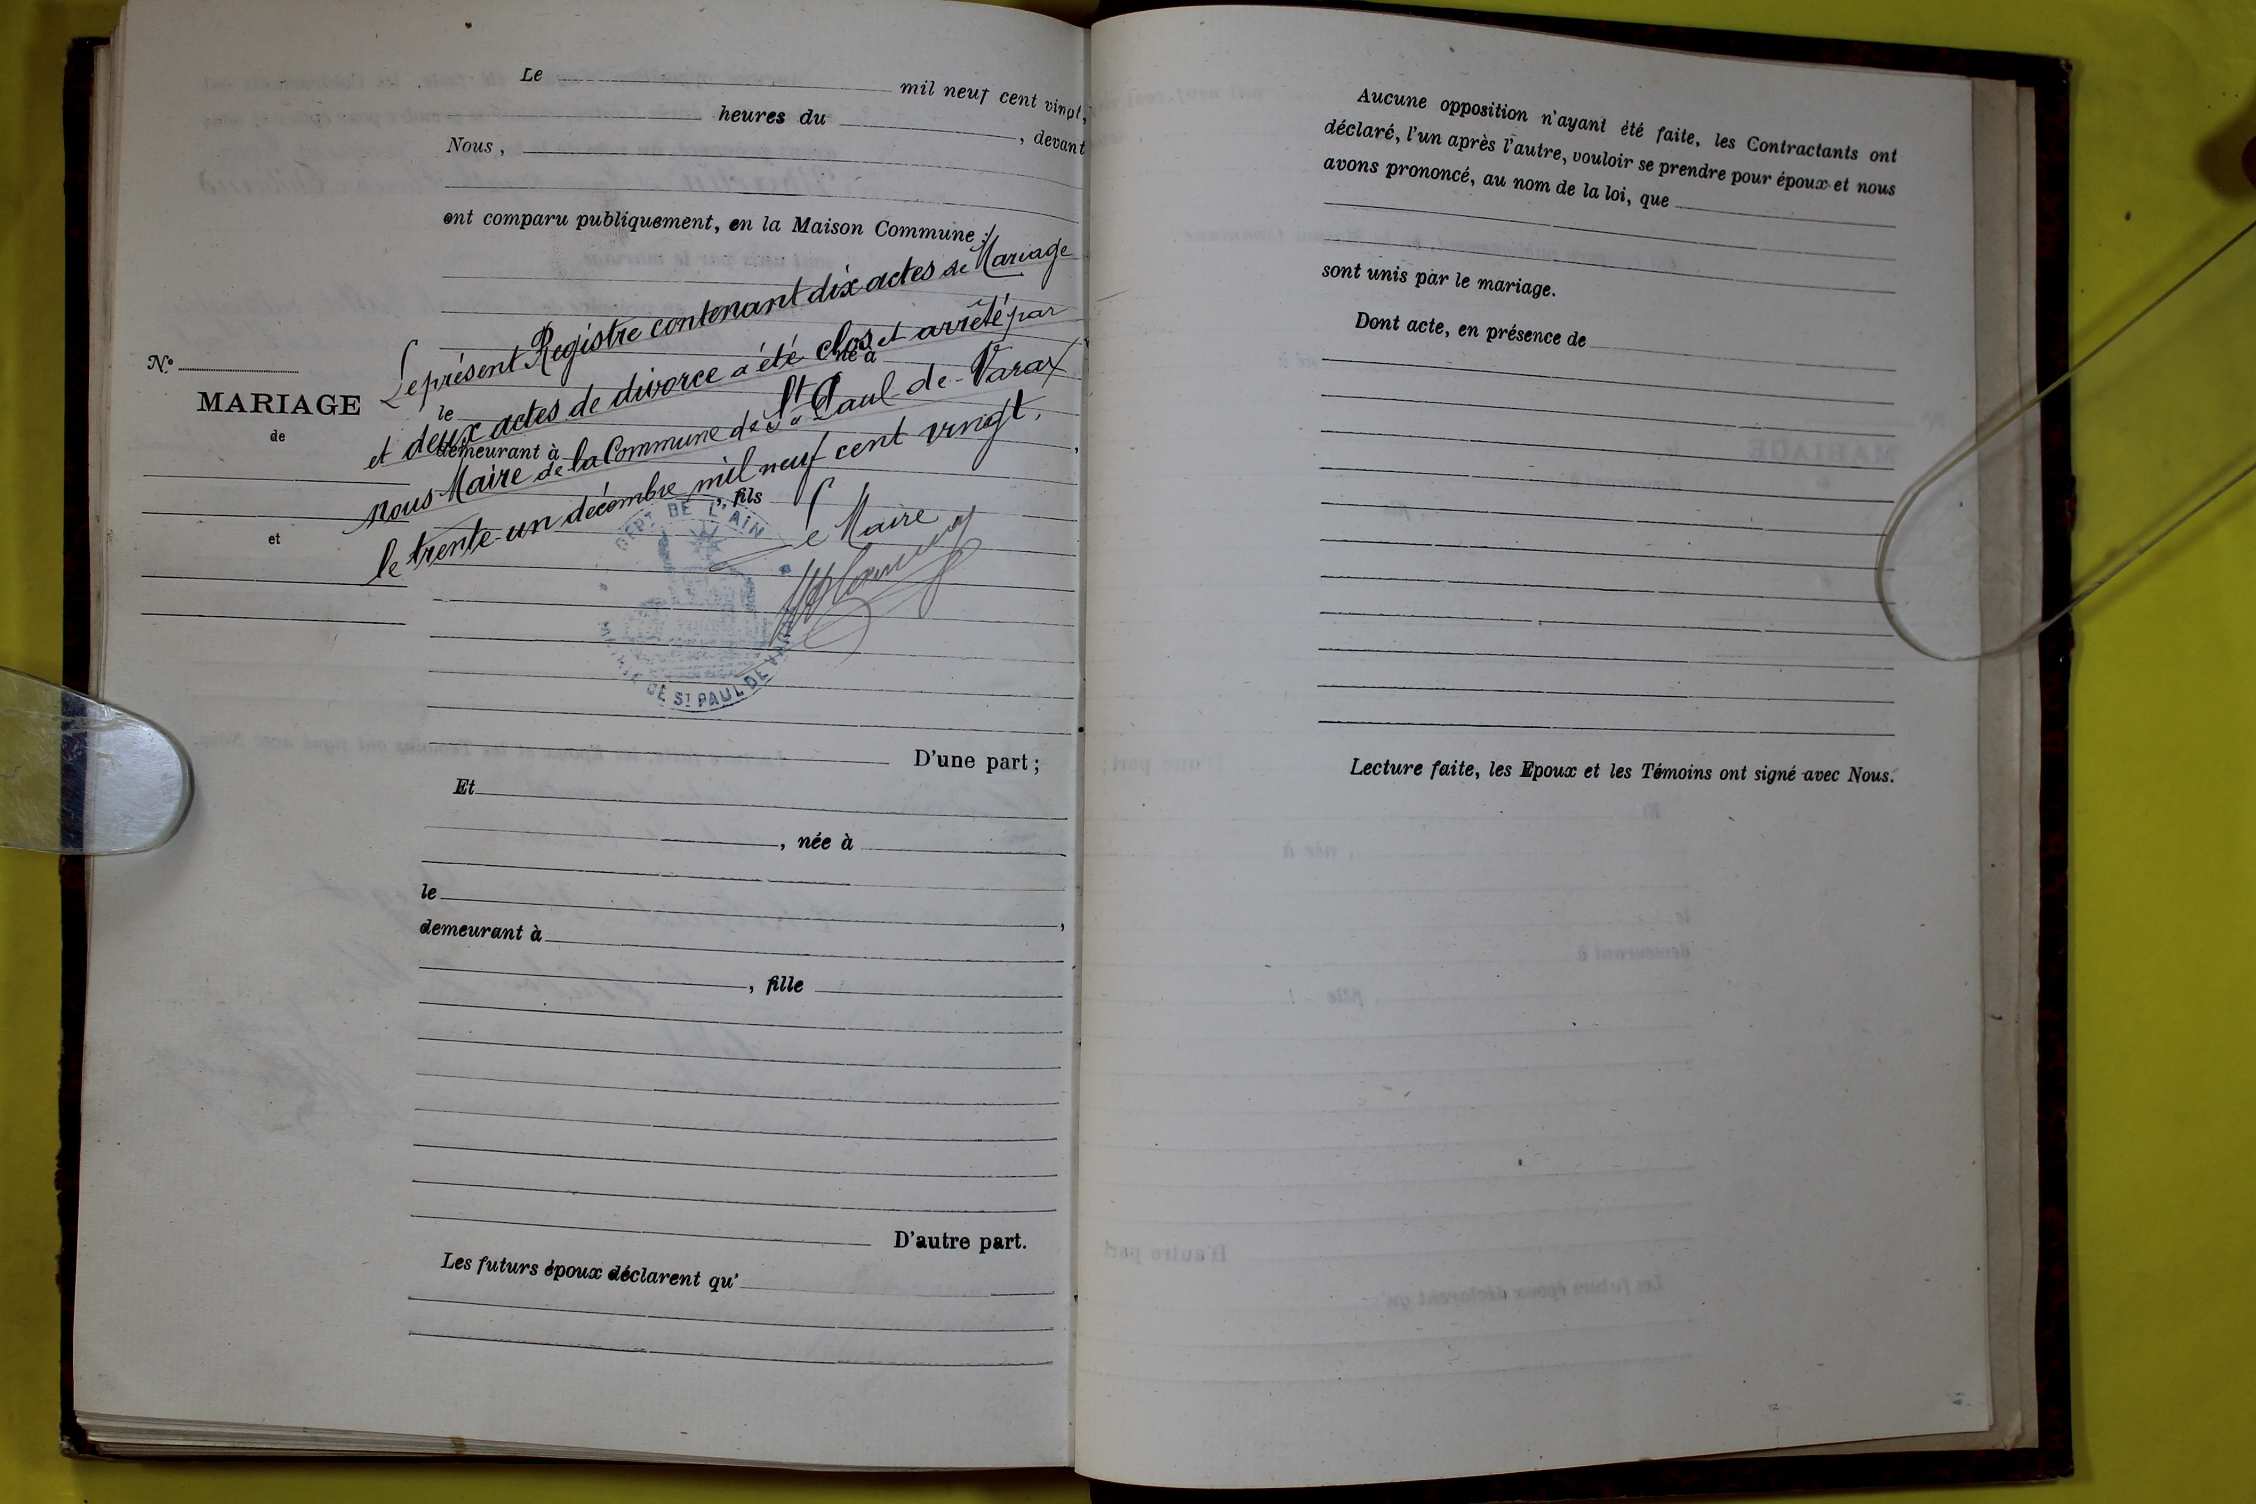 Le mil neuf cent vingt,
heures du , devant
Nous ,
ont comparu publiquement, en la Maison Commune :
Le présent Registre contenant dix actes de Mariage
et deux actes de divorce a été clos et arrêté par
nous Maire de la Commune de St Paul-de-Varax
le trente-un décembre mil neuf cent vingt.
Le Maire
né à
le
demeurant à ,
, fils
DEPT DE L'AIN
MAIRIE DE ST PAUL DE VARAX
N°
MARIAGE
de
et
D'une part ;
Et
, née à
le ,
demeurant à
, fille
D'autre part.
Les futurs époux déclarent qu'
Aucune opposition n'ayant été faite, les Contractants ont
déclaré, l'un après l'autre, vouloir se prendre pour époux et nous
avons prononcé, au nom de la loi, que
sont unis par le mariage.
Dont acte, en présence de
Lecture faite, les Epoux et les Témoins ont signé avec Nous.